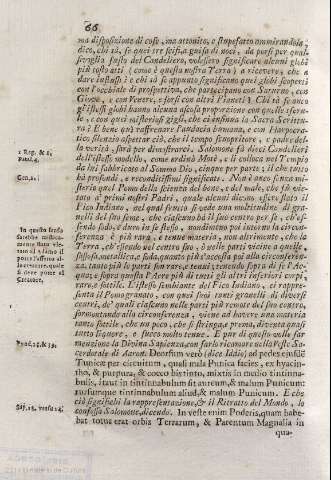 66
ma disposizione di cose, ma attonito, e stupefatto ommirandola,
dico, chi sà, se quei tre scifi a guisa di noci, da porsi per qual-
sivoglia fusto del Candeliero, volessero significare alcuni globi
più cose atti (come è questa nostra Terra) a ricevere, che a
dare influssi? e chi sà appunto significare quei globi scoperti
con l'occhiale di prospettiva, che partecipano con Saturno, con
Giove, e con Venere, e forsi con altri Pianeti? Chi sà se anco
gl'istessi globi hanno alcuna ascosa proporzione con quelle sferu-
le, e con quei misteriosi gigli, che ci insinua la Sacra Scrittu-
ra? E bene quì raffrenare l'audacia humana, e con Harpocra-
tico silenzio aspettar ciò, che il tempo scuopritore, e padre del-
la verità, sarà per dimostrarci. Salomone fà dieci Candelieri
dell'istesso modello, come ordinò Moisè, e li colloca nel Tempio
da lui fabbricato al Sommo Dio, cinque per parte; il che tutto
hà profondi, e reconditissimi significati. Non è anco senza mi-
sterio quel Pomo della scienza del bene, e del male, che fù vie-
tato a' primi nostri Padri, quale alcuni dicono essere stato il
Fico Indiano, nel qual frutto si vede una moltitudine di gra-
nelli del suo seme, che ciascuno hà il suo centro per se, ch'es-
sendo sodo, e duro in se stesso, nondimeno poi intorno la circon-
ferenza è più rara, e tenue materia, non altrimente, che la
Terra, ch'essendo nel centro suo, ò nelle parti vicine a quelle,
sassosa, metallica, e soda, quanto più s'accosta poi alla circonferen-
za, tanto più le parti sue rare, e tenui; tenendo sopra di se l'Ac-
qua; e sopra questa l'Aere più di tenui gli altri inferiori corpi,
rare, e sottile. L'istesso sembiante del Fico Indiano, ci rappre-
senta il Pomogranato, con quei suoi tanti granelli di diversi
centri, de' quali ciascuno nelle parti più remote del suo centro,
sormontando alla circonferenza, viene ad havere una materia
tanto sottile, che un poco, che si stringa preme, diventa quasi
tutto liquore, e succo molto tenue. E pur di questo volle far
menzione la Divina Sapienza, con farlo ricamare nella Veste Sa-
cerdotale di Aaron. Deorsum verò (dice Iddio) ad pedes ejusdē
Tunicæ per circuitum, quasi mala Punica facies, ex hyacin-
tho, & purpura, & cocco bis tincto, mixtis in medio tintinna-
bulis, itaut in tintinnabulum sit aureum, & malum Punicum;
rursumque tintinnabulum aliud, & malum Punicum. E che
ciò significhi la rappresentazione, & il Ritratto del Mondo, lo
confessa Salomone, dicendo. In veste enim Poderis, quam habe-
bat totus erat orbis Terrarum, & Parentum Magnalia in
qua-
1 Reg. & 2.
Paral. 4.
Gen. 2.
In questa feconda
Exod. 28. & 39.
Sap. 18. versu 24.